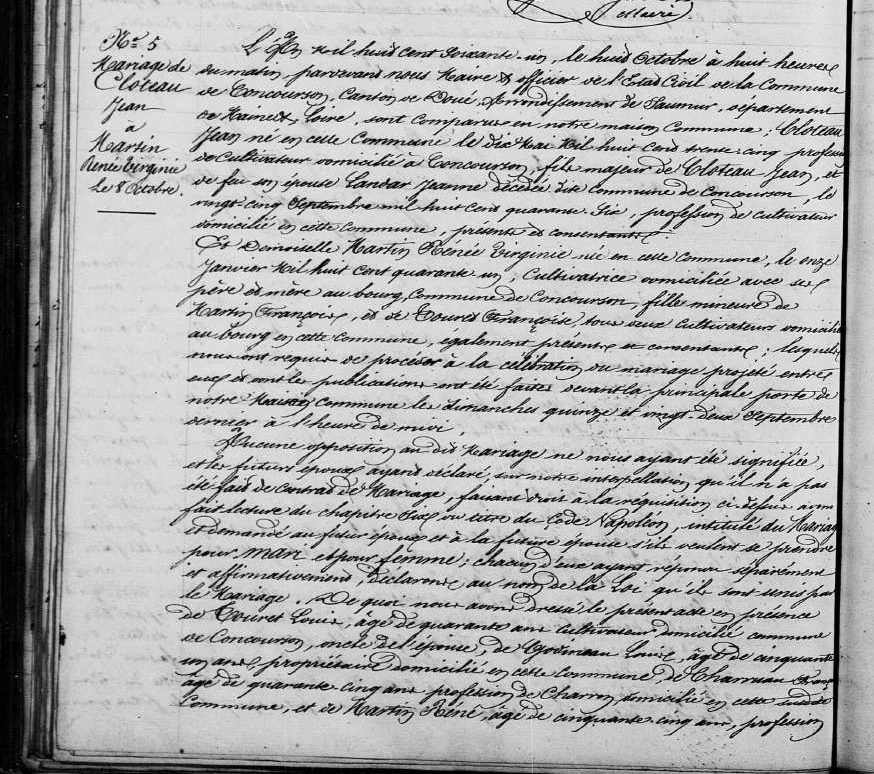 N° 5
Mariage de
Cloteau
Jean
à
Martin
Renée Virginie
Le 8 Octobre.
L'An Mil huit cent soixante-un, le huit Octobre à huit heures
du matin, pardevant nous Maire & officier de l'Etat Civil de la Commune
de Concourson, Canton de Doué, Arrondissement de Saumur, département
de Maine & Loire, sont comparus en notre maison Commune; Cloteau
Jean né en cette Commune le dix Mai Mil huit Cent trente-cinq profession
de Cultivateur domicilié à Concourson, fils majeur de Cloteau Jean, et
de feu son épouse Landar Jeanne décédée dite Commune de Concourson, le
vingt cinq Septembre mil huit cent quarante-six, profession de cultivateur
domicilié en cette commune, présente et consentante
Et Demoiselle Martin Rénée Virginie née en cette commune, le onze
Janvier Mil huit cent quarante un, Cultivatrice domiciliée avec ses
père et mère au bourg, Commune de Concourson, fille mineure de
Martin François, et de Touret Françoise, tous deux Cultivateurs domiciliés
au bourg en cette commune, également présents et consentants; lesquels
nous ont requis de procéder à la célébration du mariage projeté entre
eux et dont les publications ont été faites devant la principale porte de
notre Maison Commune les dimanches quinze et vingt-deux Septembre
dernier à l'heure de midi
Aucune opposition au dit Mariage ne nous ayant été signifiée,
et les futurs époux ayant déclaré, sur notre interpellation, qu'il n'a pas
été fait de Contrat de Mariage, faisant droit à la réquisition ci-dessus avons
fait lecture du chapitre Six du titre du Code Napoléon, intitulé du Mariage
et demandé au futur époux et à la future épouse s'ils veulent se prendre
pour mari et pour femme; chacun d'eux ayant répondu séparément
et affirmativement, déclarons au nom de la Loi qu'ils sont unis par
le Mariage. De quoi nous avons dressé le présent acte en présence
de Touret Louis, âgé de quarante ans cultivateur domicilié commune
de Concourson, oncle de l'épouse, de Godineau Louis, âgé de cinquante
un ans, propriétaire domicilié en cette Commune, de
âgé de quarante cinq ans profession de Charron, domicilié en cette susdite
Commune, et de Martin René, âgé de cinquante-cinq ans, profession